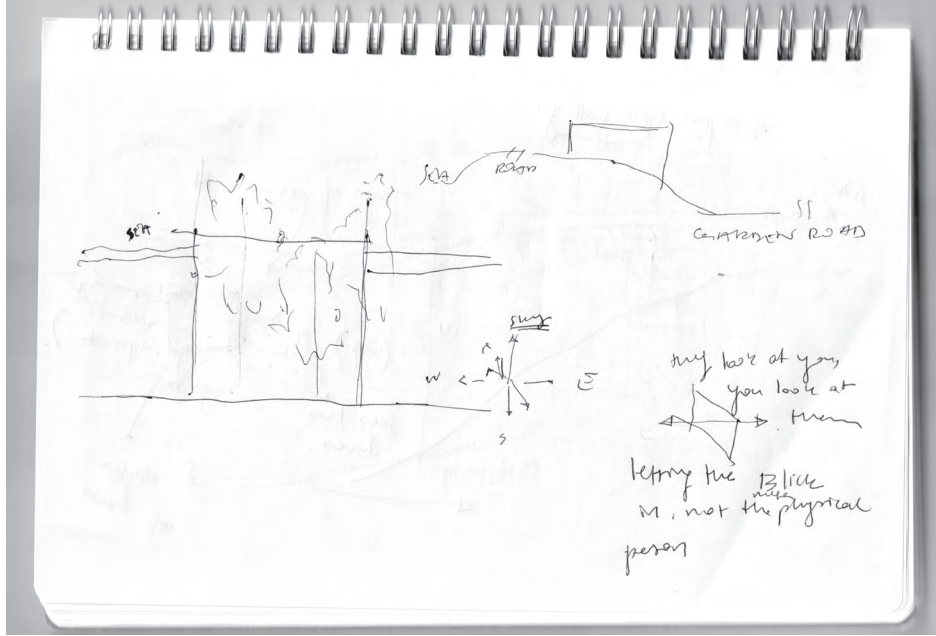 SEA
ROAD
SS
GARDENS ROAD
SEA
sung
N
W
E
S
they look at you,
you look at
them
letting the Blick
in, not the
physical
person